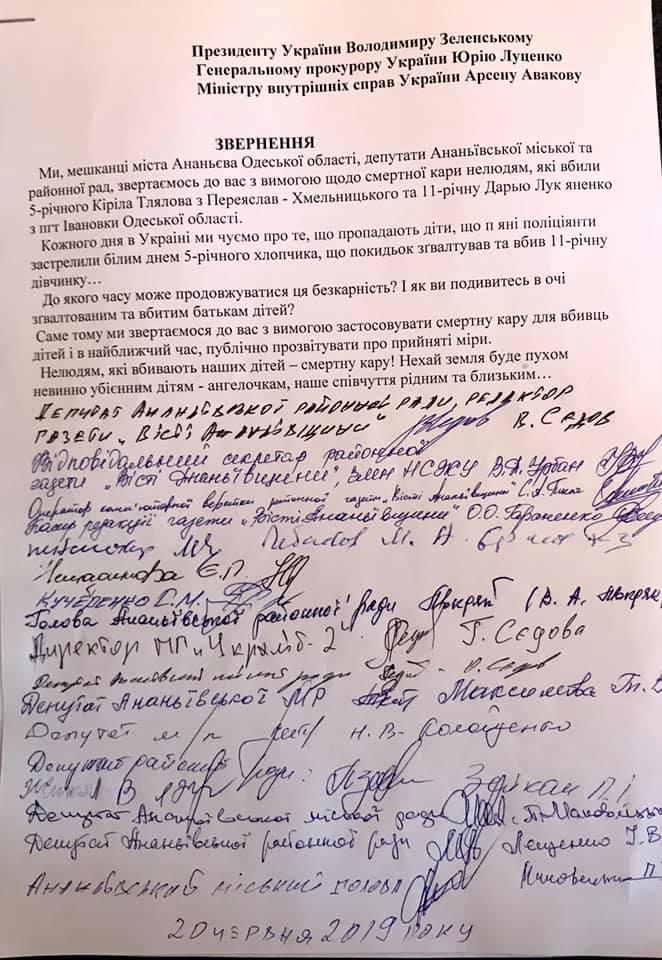 Президенту України Володимиру Зеленському
Генеральному прокурору України Юрію Луценко
Міністру внутрішніх справ України Арсену Авакову
ЗВЕРНЕННЯ
Ми, мешканці міста Ананьєва Одеської області, депутати Ананьївської міської та
районної рад, звертаємось до вас з вимогою щодо смертної кари нелюдям, які вбили
5-річного Кіріла Тлялова з Переяслав - Хмельницького та 11-річну Дарью Лук яненко
з пгт Івановки Одеської області.
Кожного дня в Україні ми чуємо про те, що пропадають діти, що п яні поліціянти
застрелили білим днем 5-річного хлопчика, що покидьок зґвалтував та вбив 11-річну
дівчинку…
До якого часу може продовжуватися ця безкарність? І як ви подивитесь в очі
зґвалтованим та вбитим батькам дітей?
Саме тому ми звертаємося до вас з вимогою застосовувати смертну кару для вбивць
дітей і в найближчий час, публічно прозвітувати про прийняті міри.
Нелюдям, які вбивають наших дітей – смертну кару! Нехай земля буде пухом
невинно убієнним дітям - ангелочкам, наше співчуття рідним та близьким…
Депутат Ананьївської районної ради, редактор
газети „Вісті Ананьївщини" В. Сєдов
Відповідальний секретар районної
газети „Вісті Ананьївщини", член НСЖУ В.А. Урбан
Оператор комп'юторної верстки районної газети „Вісті Ананьївщини" С.А.
Касир редакції газети „Вісті Ананьївщини" О.О.
М. А.
Є.П.
Кучеренко С.М.
Голова Ананьївської районної ради (В. А.
Директор МП „Укрліб-2" Г. Сєдова
Депутат ради О. Сєдов
Депутат Ананьївської МР Максимова Т. В
Депутат м/р Н. В.
Депутат районної ради: П.І.
Депутат Ананьївської міської ради
Депутат Ананьївської районної ради Лещенко І. В
Ананьївський міський голова
20 червня 2019 року